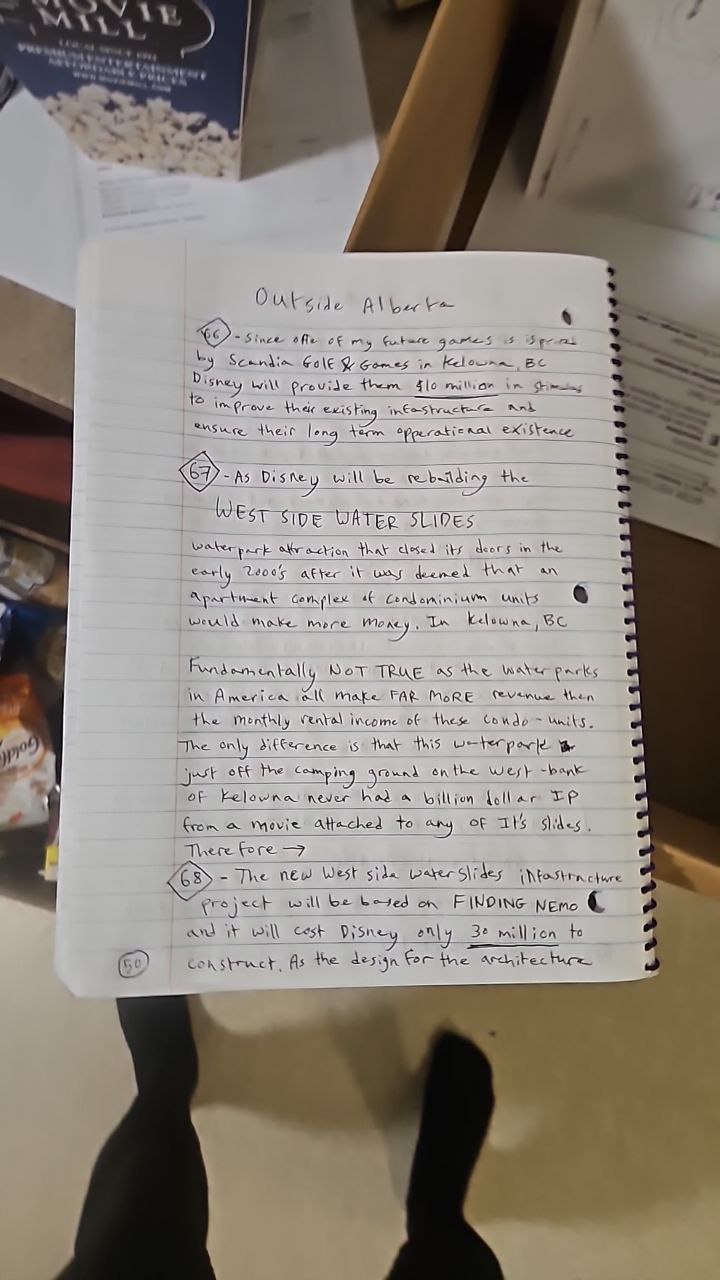 MOVIE
MILL
PREMIUM ENTERTAINMENT
AFFORDABLE PRICES
Outside Alberta
66 - Since one of my future games is ispired
by Scandia Golf & Games in Kelowna, BC
Disney will provide them $10 million in stimulus
to improve their existing infastructure and
ensure their long term opperational existence
67 - As Disney will be rebuilding the
WEST SIDE WATER SLIDES
waterpark attraction that closed its doors in the
early 2000's after it was deemed that an
apartment complex of condominium units
would make more money. In Kelowna, BC
Fundamentally NOT TRUE as the waterparks
in America all make FAR MORE revenue then
the monthly rental income of these condo-units.
The only difference is that this waterpark
just off the camping ground on the west-bank
of Kelowna never had a billion dollar IP
from a movie attached to any of It's slides.
Therefore →
68 - The new West side waterslides infastructure
project will be based on FINDING NEMO
and it will cost Disney only 30 million to
construct. As the design for the architecture
50
Goldfi